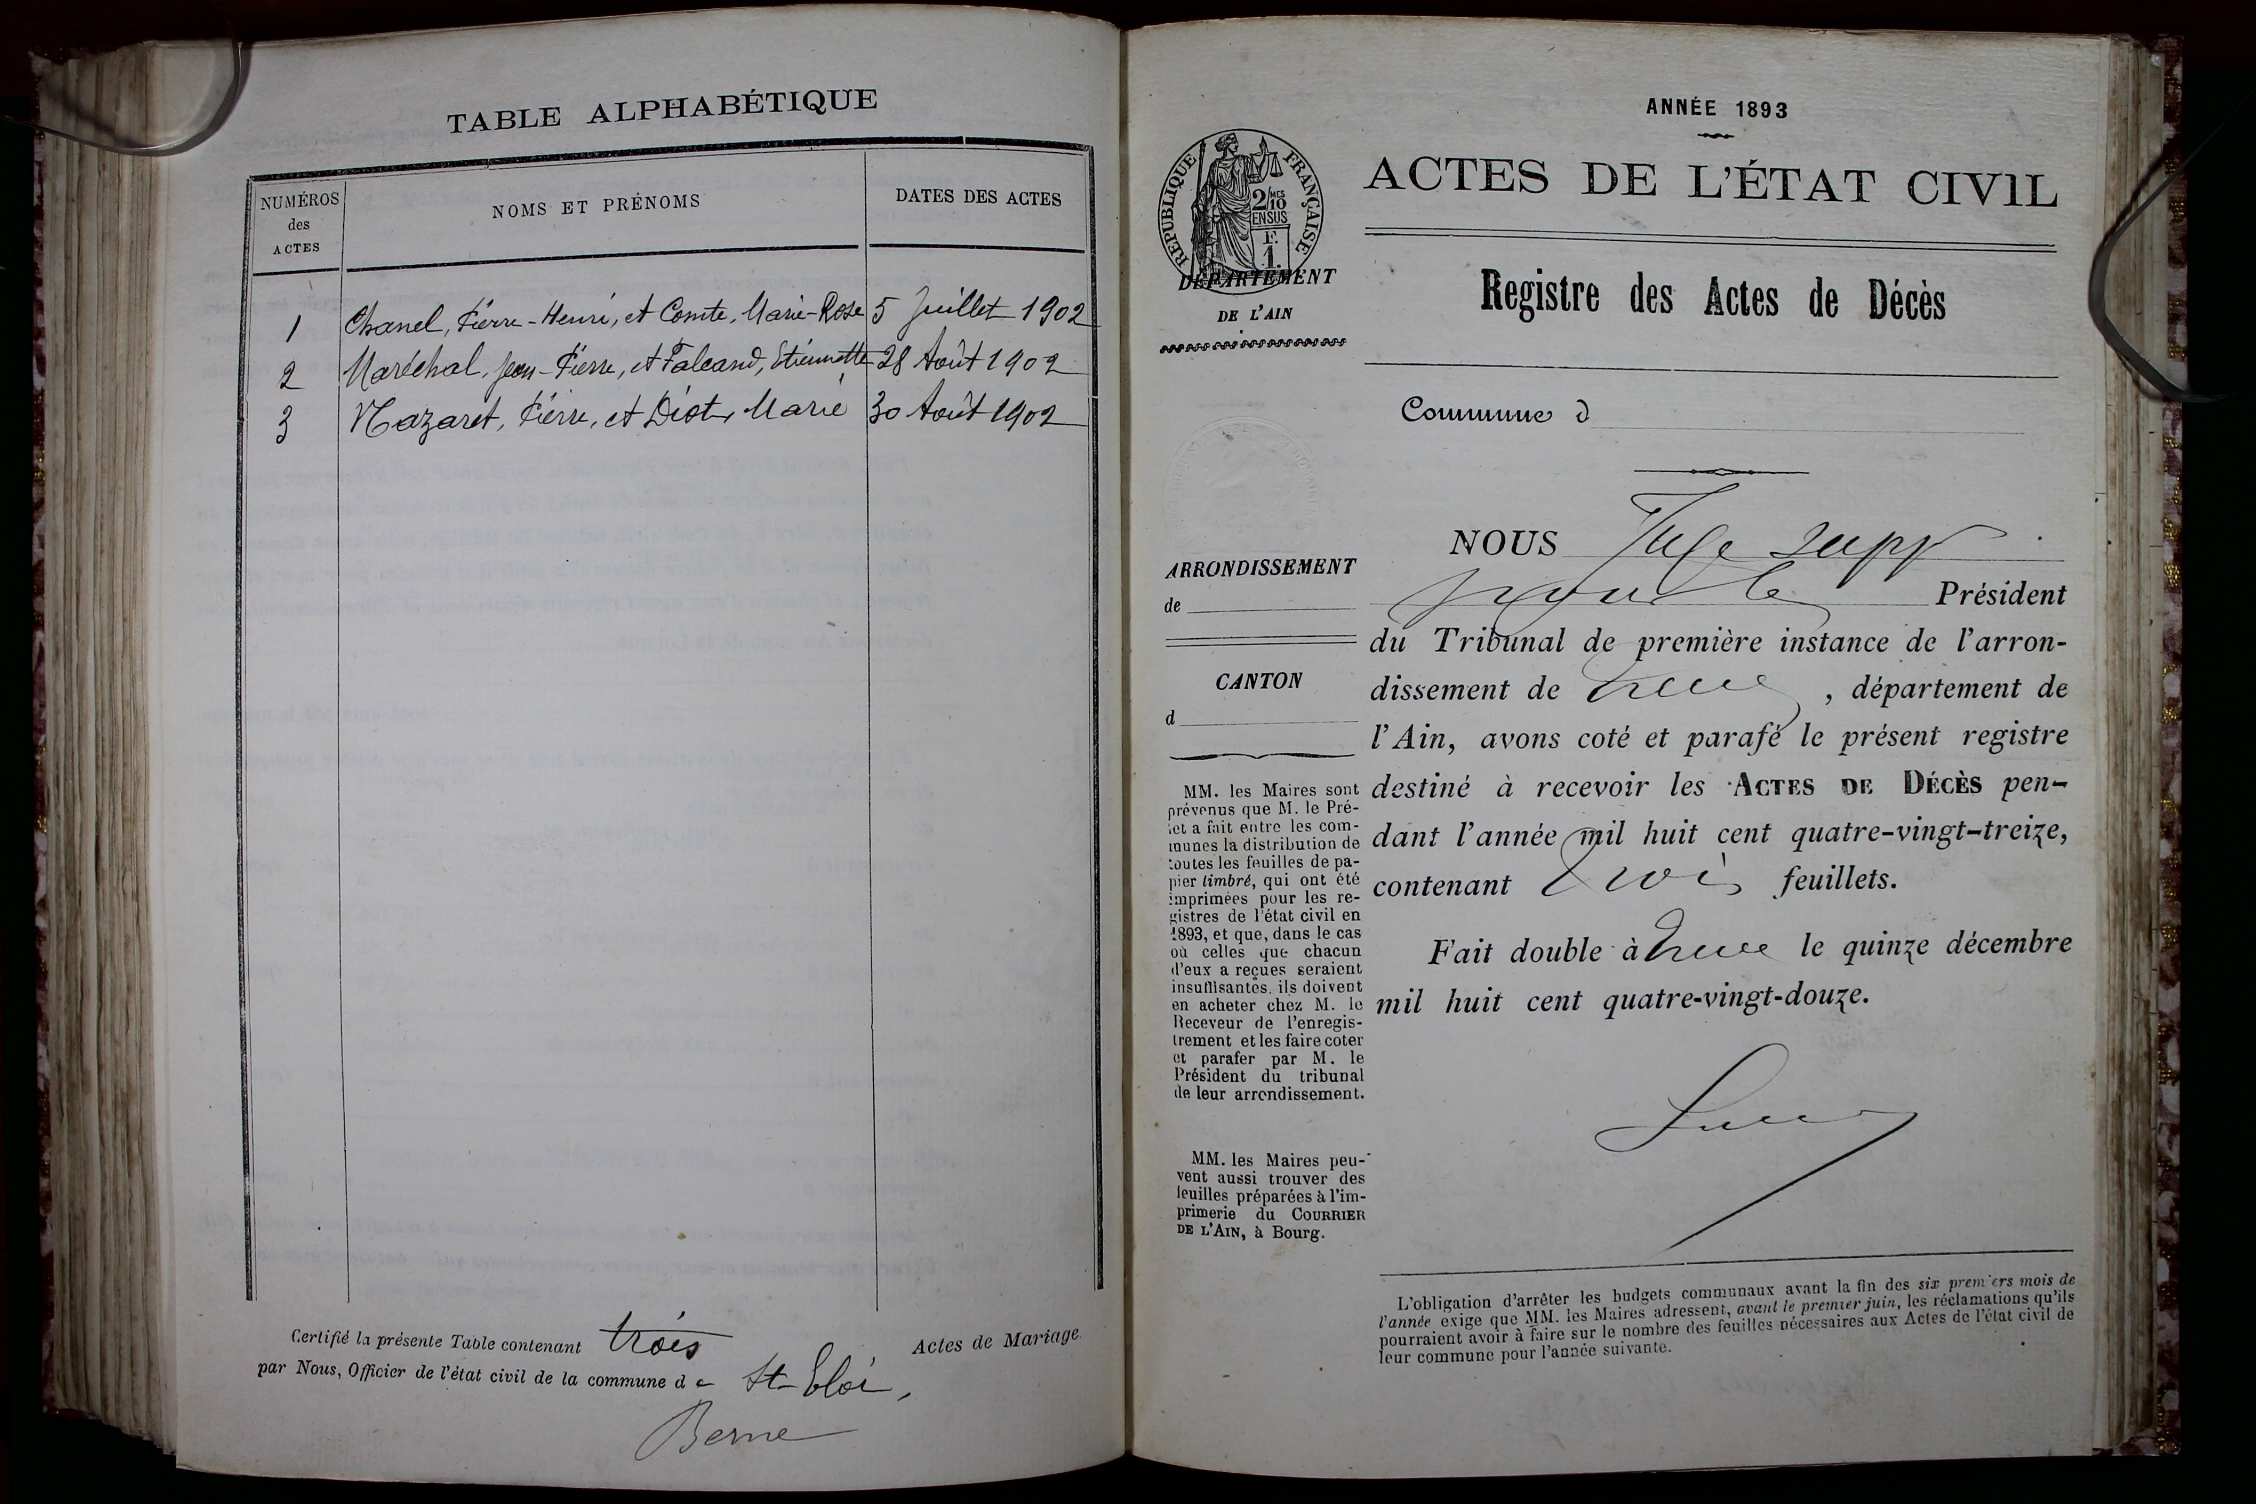 TABLE ALPHABÉTIQUE
NUMÉROS des ACTES
NOMS ET PRÉNOMS
DATES DES ACTES
1 Chanel, Pierre-Henri, et Comte, Marie-Rose 5 Juillet 1902
2 Maréchal, Jean-Pierre, et Falcand, Etiennette 28 Août 1902
3 Mazaret, Pierre, et Diot, Marie 30 Août 1902
Certifié la présente Table contenant trois Actes de Mariage
par Nous, Officier de l'état civil de la commune de St-Eloi,
Berne
ANNÉE 1893
RÉPUBLIQUE FRANÇAISE
2/10 MES
EN SUS
F.
1.
ACTES DE L'ÉTAT CIVIL
DÉPARTEMENT
DE L'AIN
Registre des Actes de Décès
Commune d
ARRONDISSEMENT
de
CANTON
d
MM. les Maires sont
prévenus que M. le Pré-
fet a fait entre les com-
munes la distribution de
toutes les feuilles de pa-
pier timbré, qui ont été
imprimées pour les re-
gistres de l'état civil en
1893, et que, dans le cas
où celles que chacun
d'eux a reçues seraient
insuffisantes, ils doivent
en acheter chez M. le
Receveur de l'enregis-
trement et les faire coter
et parafer par M. le
Président du tribunal
de leur arrondissement.
MM. les Maires peu-
vent aussi trouver des
feuilles préparées à l'im-
primerie du COURRIER
DE L'AIN, à Bourg.
NOUS Juge supp
pour le Président
du Tribunal de première instance de l'arron-
dissement de , département de
l'Ain, avons coté et parafé le présent registre
destiné à recevoir les ACTES DE DÉCÈS pen-
dant l'année mil huit cent quatre-vingt-treize,
contenant trois feuillets.
Fait double à le quinze décembre
mil huit cent quatre-vingt-douze.
L'obligation d'arrêter les budgets communaux avant la fin des six premiers mois de
l'année exige que MM. les Maires adressent, avant le premier juin, les réclamations qu'ils
pourraient avoir à faire sur le nombre des feuilles nécessaires aux Actes de l'état civil de
leur commune pour l'année suivante.